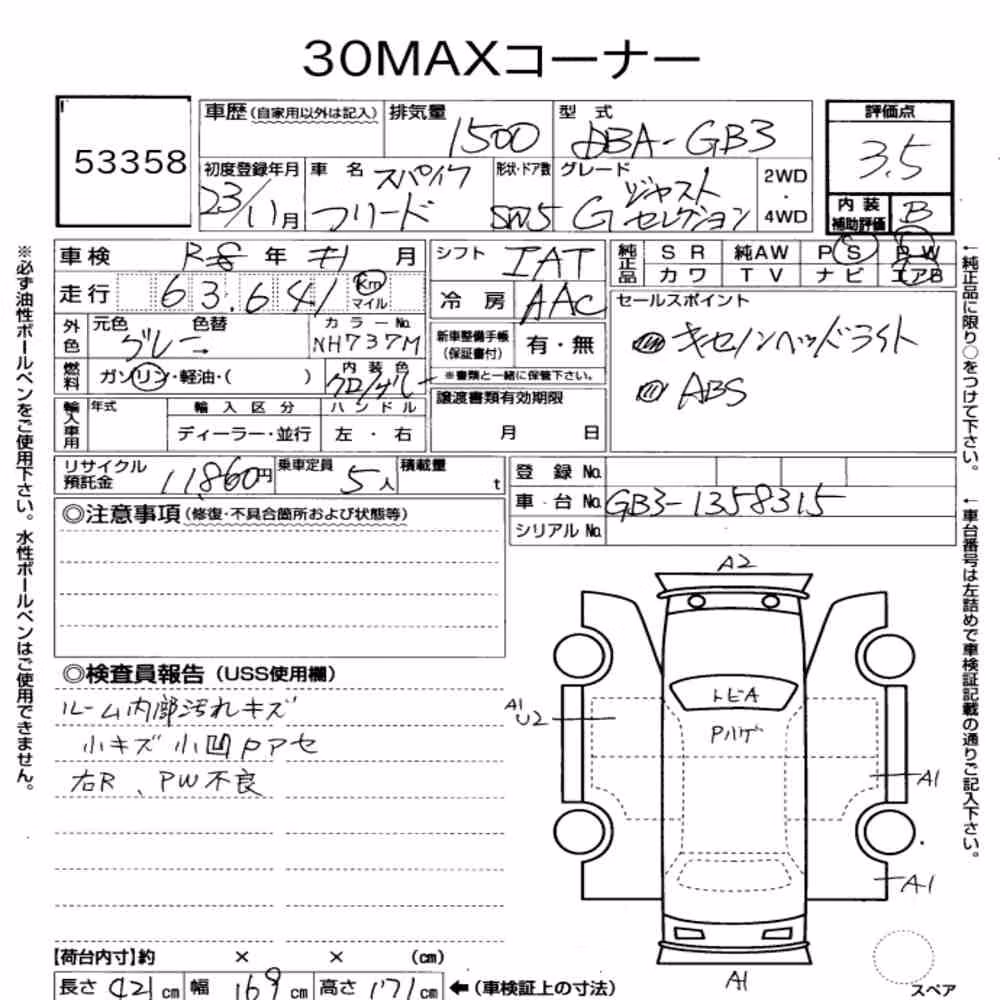 30MAXコーナー
53358
車歴(自家用以外は記入) 排気量 1500 型式 DBA-GB3
評価点 3.5
初度登録年月 23/11月 車名 フリード スパイク 形状・ドア数 SW5 グレード G ジャスト セレクション 2WD・4WD
内装補助評価 B
車検 R8年 月
シフト IAT
純正品 SR 純AW PS PW
カワ TV ナビ エアB
走行 63,641 Km マイル
冷房 AAC
セールスポイント
キセノンヘッドライト
ABS
外色 元色 グレー 色替 カラーNo. NH737M
新車整備手帳(保証書付) 有・無
※書類と一緒に保管下さい。
燃料 ガソリン・軽油・( ) 内装色 クロ/グレー
譲渡書類有効期限
月 日
輸入車用 年式 輸入区分 ハンドル
ディーラー・並行 左・右
リサイクル預託金 11,860円 乗車定員 5人 積載量 t
登録No.
車台No. GB3-1358315
シリアルNo.
◎注意事項(修復・不具合箇所および状態等)
◎検査員報告(USS使用欄)
ルーム内部汚れキズ
小キズ小凹Pアセ
右R、PW不良
A2
トビA
Pハゲ
A1
U2
A1
A1
A1
【荷台内寸】約 × × (cm)
長さ 421cm 幅 169cm 高さ 171cm ←(車検証上の寸法)
スペア
※必ず油性ボールペンをご使用下さい。水性ボールペンはご使用できません。
←純正品に限り○をつけて下さい。
←車台番号は左詰めで車検証記載の通りご記入下さい。